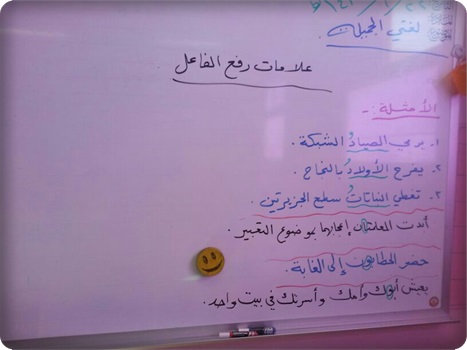 لغتي الجميلة
علامات رفع الفاعل
الأمثلة :-
١. يرمي الصيادُ الشبكة .
٢. يفرح الأولادُ بالنجاح .
٣. تغطي النباتاتُ سطح الجزيرتين .
أبدت المعلمتان إعجابهما بموضوع التعبير .
حضر الحطابون إلى الغابة .
يعيش أبوك وأمك وأسرتك في بيت واحد .